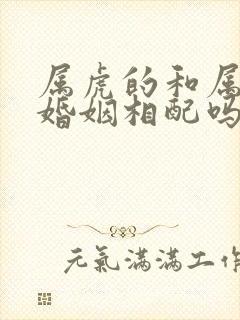 属虎的和属
婚姻相配吗
元氣滿滿工作